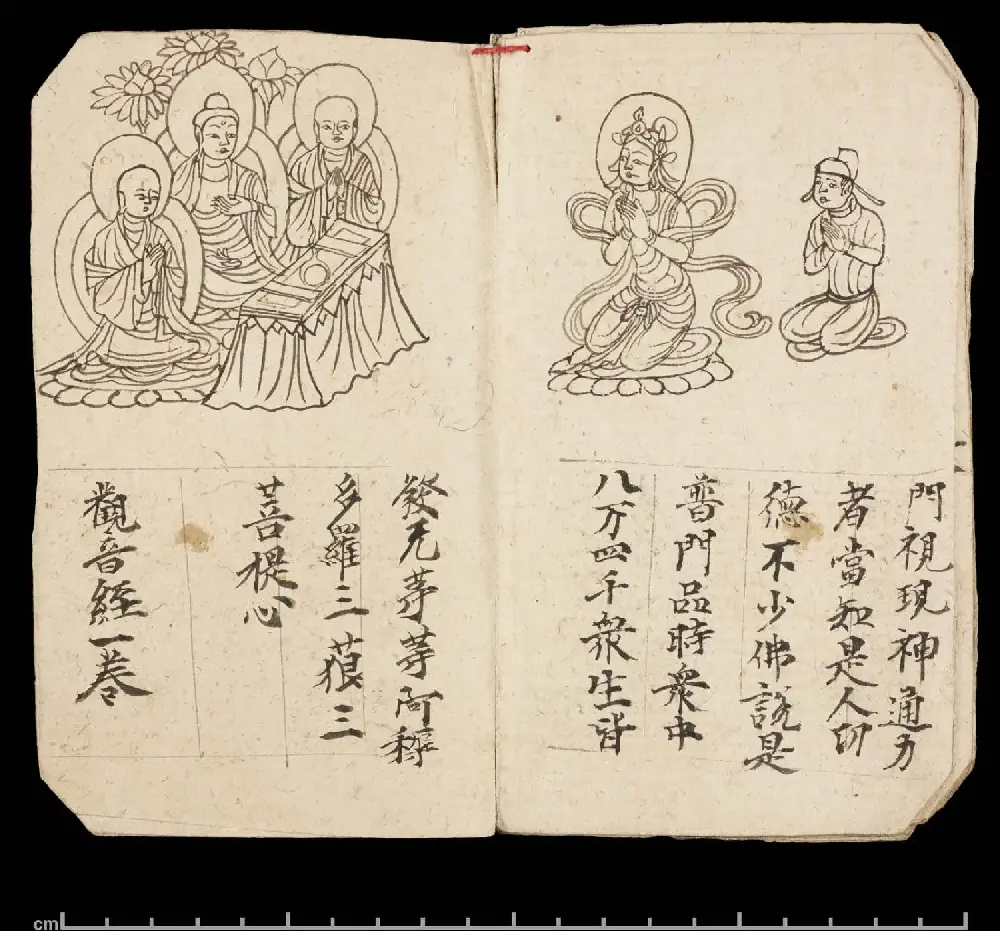 門視現神通力
者當知是人功
德不少佛說是
普門品時衆中
八万四千衆生皆
發无等等阿耨
多羅三藐三
菩提心
觀音經一卷
cm